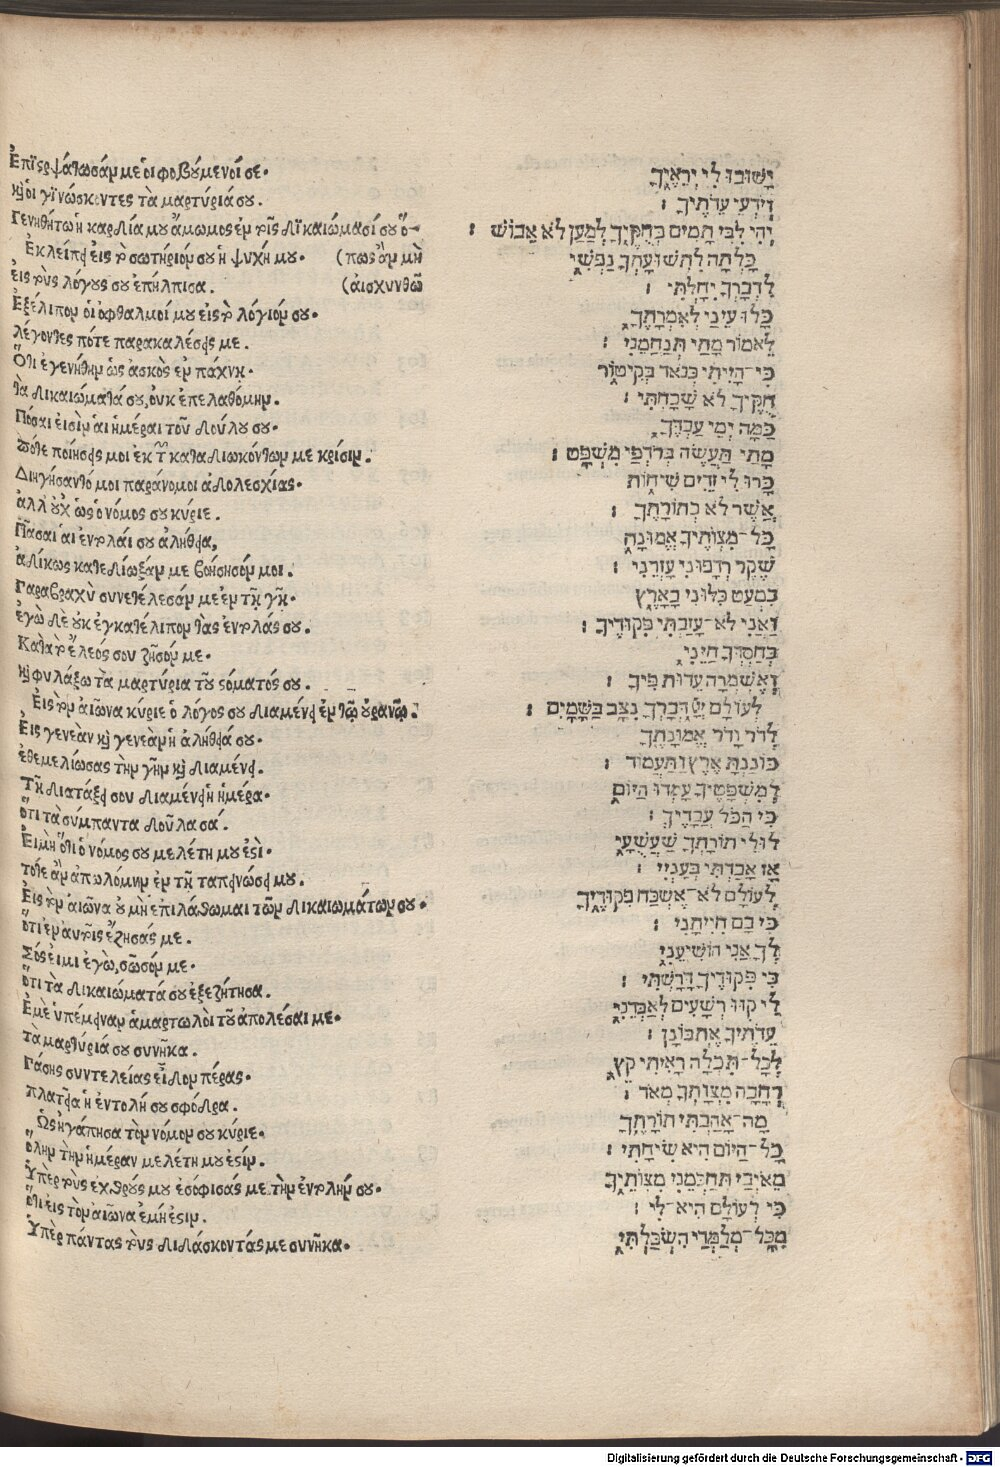 Ἐπϊςρψάτωσάν με ὁι φοβούμενοί σε.
κỳ ὁι γϊνώσκοντες τὰ μαρτύριά σου.
Γενηθήτω ἡ καρδία μου ἄμωμος ἐν τοῖς δϊκαιώμασί σου ὅ-
(πως ἂν μὴ
(ἀισχυνθῶ
Ἐκλείπει εἰς τὸ σωτήριόν σου ἡ ψυχή μου.
ἐις τοὺς λόγους σου ἐπήλπισα.
Ἐξέλιπον ὁι ὀφθαλμοί μου εἰς τὸ λόγιόν σου.
λέγοντες πότε παρακαλέσεις με.
Ὅτι ἐγενήθην ὡς ἀσκὸς ἐν πάχνῃ.
τὰ δικαιώματά σου, ὀυκ ἐπελαθόμην.
Πόσαι ἐισὶν ἁι ἡμέραι τοῦ δούλου σου.
πότε ποιήσεις μοι ἐκ τῶν καταδιωκόντων με κρίσιν.
Διηγήσαντό μοι παράνομοι ἀδολεσχίας.
ἀλλ᾽ ὀυχ ὡς ὁ νόμος σου κύριε.
Πᾶσαι ἁι ἐντολαί σου ἀλήθεια,
ἀδίκως κατεδίωξάν με βοήθησόν μοι.
Γαραβραχὺ συνετέλεσάν με ἐν τῇ γῇ.
ἐγὼ δὲ ὀυκ ἐγκατέλιπον τὰς ἐντολάς σου.
Κατὰ τὸ ἔλεός σου ζῆσόν με.
κỳ φυλάξω τὰ μαρτύρια τοῦ σόματός σου.
Ἐις τὸν ἀιῶνα κύριε ὁ λόγος σου διαμένει ἐν τῷ ὀυρανῷ.
Ἐις γενεὰν κỳ γενεὰν ἡ ἀλήθειά σου.
ἐθεμελίωσας τὴν γῆν κỳ διαμένει.
Τῇ διατάξει σου διαμένει ἡ ἡμέρα.
ὅτι τὰ σύμπαντα δοῦλα σά.
Ἐι μὴ ὅτι ὁ νόμος σου μελέτη μου ἐσί.
τότε ἂν ἀπωλόμην ἐν τῇ ταπεινώσει μου.
Ἐις τὸν ἀιῶνα ὀυ μὴ ἐπιλάθωμαι τῶν δικαιωμάτων σου.
ὅτι ἐν ἀυτοῖς ἔζησάς με.
Σός ἐιμι ἐγὼ, σῶσόν με.
ὅτι τὰ δικαιώματά σου ἐξεζήτησα.
Ἐμὲ ὑπέμειναν ἁμαρτωλοὶ τοῦ ἀπολέσαι με.
τὰ μαρτύριά σου συνῆκα.
Γάσης συντελείας εἶδον πέρας.
πλατεῖα ἡ ἐντολή σου σφόδρα.
Ὡς ἠγάπησα τὸν νόμον σου κύριε.
ὅλην τὴν ἡμέραν μελέτη μου ἐσίν.
Ὑπὲρ τοὺς ἐχθρούς μου ἐσόφισάς με τὴν ἐντολήν σου.
ὅτι εἰς τὸν ἀιῶνα ἐμή ἐσιν.
Ὑπὲρ πάντας τοὺς διδάσκοντάς με συνῆκα.
יָשׁוּבוּ לִי יְרֵאֶיךָ
וְיֹדְעֵי עֵדֹתֶיךָ׃
יְהִי לִבִּי תָמִים בְּחֻקֶּיךָ לְמַעַן לֹא אֵבוֹשׁ׃
כָּלְתָה לִתְשׁוּעָתְךָ נַפְשִׁי
לִדְבָרְךָ יִחָלְתִּי׃
כָּלוּ עֵינַי לְאִמְרָתֶךָ
לֵאמוֹר מָתַי תְּנַחֲמֵנִי׃
כִּי־הָיִיתִי כְּנֹאד בְּקִיטוֹר
חֻקֶּיךָ לֹא שָׁכָחְתִּי׃
כַּמָּה יְמֵי עַבְדֶּךָ
מָתַי תַּעֲשֶׂה בְרֹדְפַי מִשְׁפָּט׃
כָּרוּ לִי זֵדִים שִׁיחוֹת
אֲשֶׁר לֹא כְתוֹרָתֶךָ׃
כָּל־מִצְוֹתֶיךָ אֱמוּנָה
שֶׁקֶר רְדָפוּנִי עָזְרֵנִי׃
כִּמְעַט כִּלּוּנִי בָאָרֶץ
וַאֲנִי לֹא־עָזַבְתִּי פִקּוּדֶיךָ׃
כְּחַסְדְּךָ חַיֵּנִי
וְאֶשְׁמְרָה עֵדוּת פִּיךָ׃
לְעוֹלָם יְיָ דְּבָרְךָ נִצָּב בַּשָּׁמָיִם׃
לְדֹר וָדֹר אֱמוּנָתֶךָ
כּוֹנַנְתָּ אֶרֶץ וַתַּעֲמוֹד׃
לְמִשְׁפָּטֶיךָ עָמְדוּ הַיּוֹם
כִּי הַכֹּל עֲבָדֶיךָ׃
לוּלֵי תוֹרָתְךָ שַׁעֲשֻׁעָי
אָז אָבַדְתִּי בְעָנְיִי׃
לְעוֹלָם לֹא־אֶשְׁכַּח פִּקּוּדֶיךָ
כִּי בָם חִיִּיתָנִי׃
לְךָ אֲנִי הוֹשִׁיעֵנִי
כִּי פִקּוּדֶיךָ דָרָשְׁתִּי׃
לִי קִוּוּ רְשָׁעִים לְאַבְּדֵנִי
עֵדֹתֶיךָ אֶתְבּוֹנָן׃
לְכָל־תִּכְלָה רָאִיתִי קֵץ
רְחָבָה מִצְוָתְךָ מְאֹד׃
מָה־אָהַבְתִּי תוֹרָתֶךָ
כָּל־הַיּוֹם הִיא שִׂיחָתִי׃
מֵאֹיְבַי תְּחַכְּמֵנִי מִצְוֹתֶיךָ
כִּי לְעוֹלָם הִיא־לִי׃
מִכָּל־מְלַמְּדַי הִשְׂכַּלְתִּי
Digitalisierung gefördert durch die Deutsche Forschungsgemeinschaft - DFG